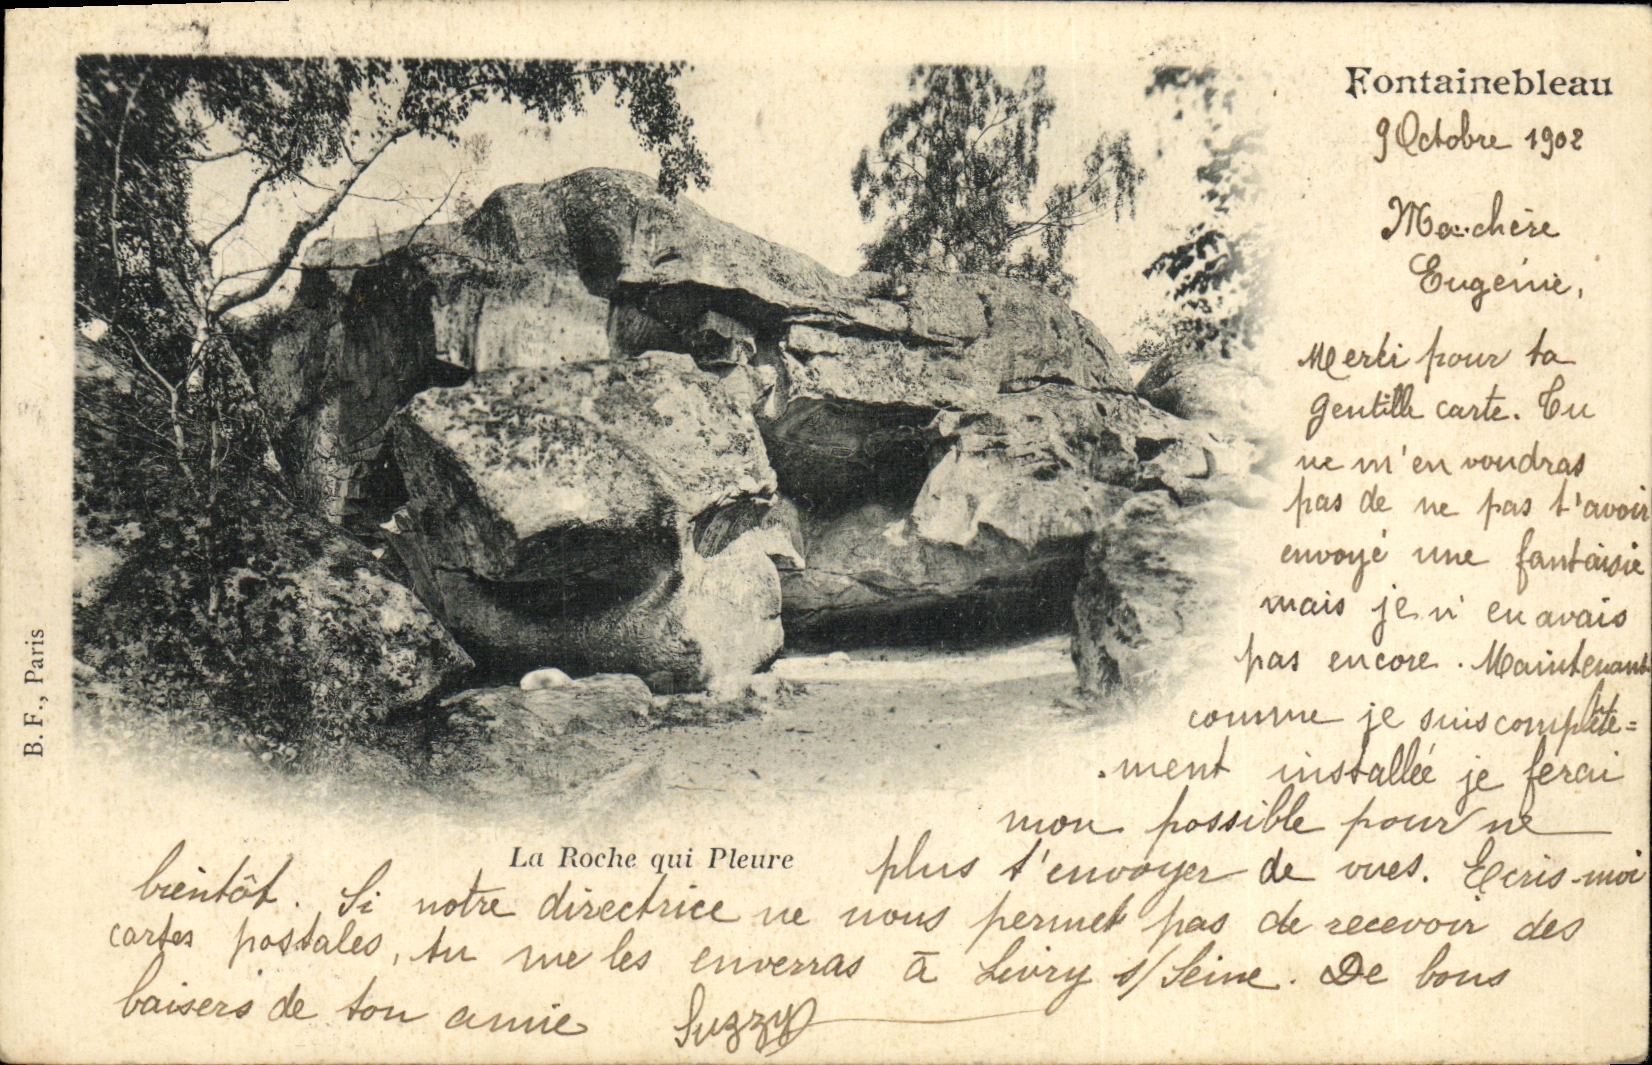 Fontainebleau
9 Octobre 1902
Ma chère
Eugénie,
Merci pour ta
gentille carte. Tu
ne m'en voudras
pas de ne pas t'avoir
envoyé une fantaisie
mais je n'en avais
pas encore. Maintenant
comme je suis complète=
ment installée je ferai
mon possible pour ne
plus t'envoyer de vues. Ecris-moi
bientôt. Si notre directrice ne nous permet pas de recevoir des
cartes postales, tu me les enverras à Livry s/Seine. De bons
baisers de ton amie Suzzy
La Roche qui Pleure
B. F., Paris